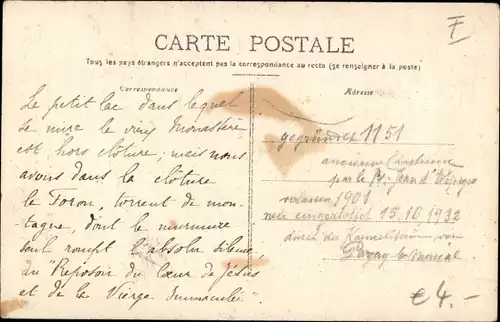 F
CARTE POSTALE
Tous les pays étrangers n'acceptent pas la correspondance au recto (se renseigner à la poste)
Correspondance
Adresse
Le petit lac dans lequel
se mire le vieux Monastère
est hors clôture ; mais nous
avons dans la clôture
le Foron, torrent de mon-
tagne, dont le murmure
seul rompt l'absolu silence
du "Reposoir du Cœur de Jésus
et de la Vierge Immaculée"
gegründet 1151
ancienne Chartreuse
par le Jean d'
verlassen 1901
15.10.1932
von
Paray le Monial
€4.-